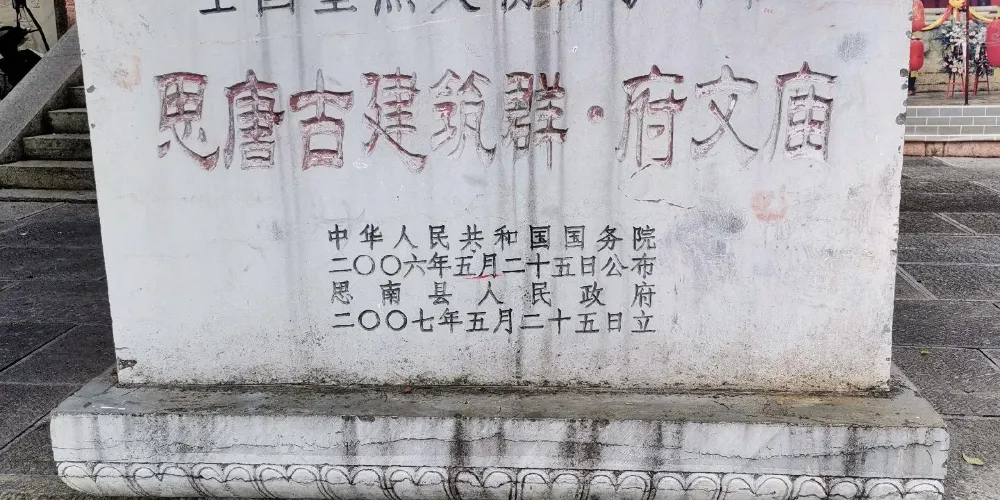 思唐古建筑群·府文庙
中华人民共和国国务院
二〇〇六年五月二十五日公布
思南县人民政府
二〇〇七年五月二十五日立